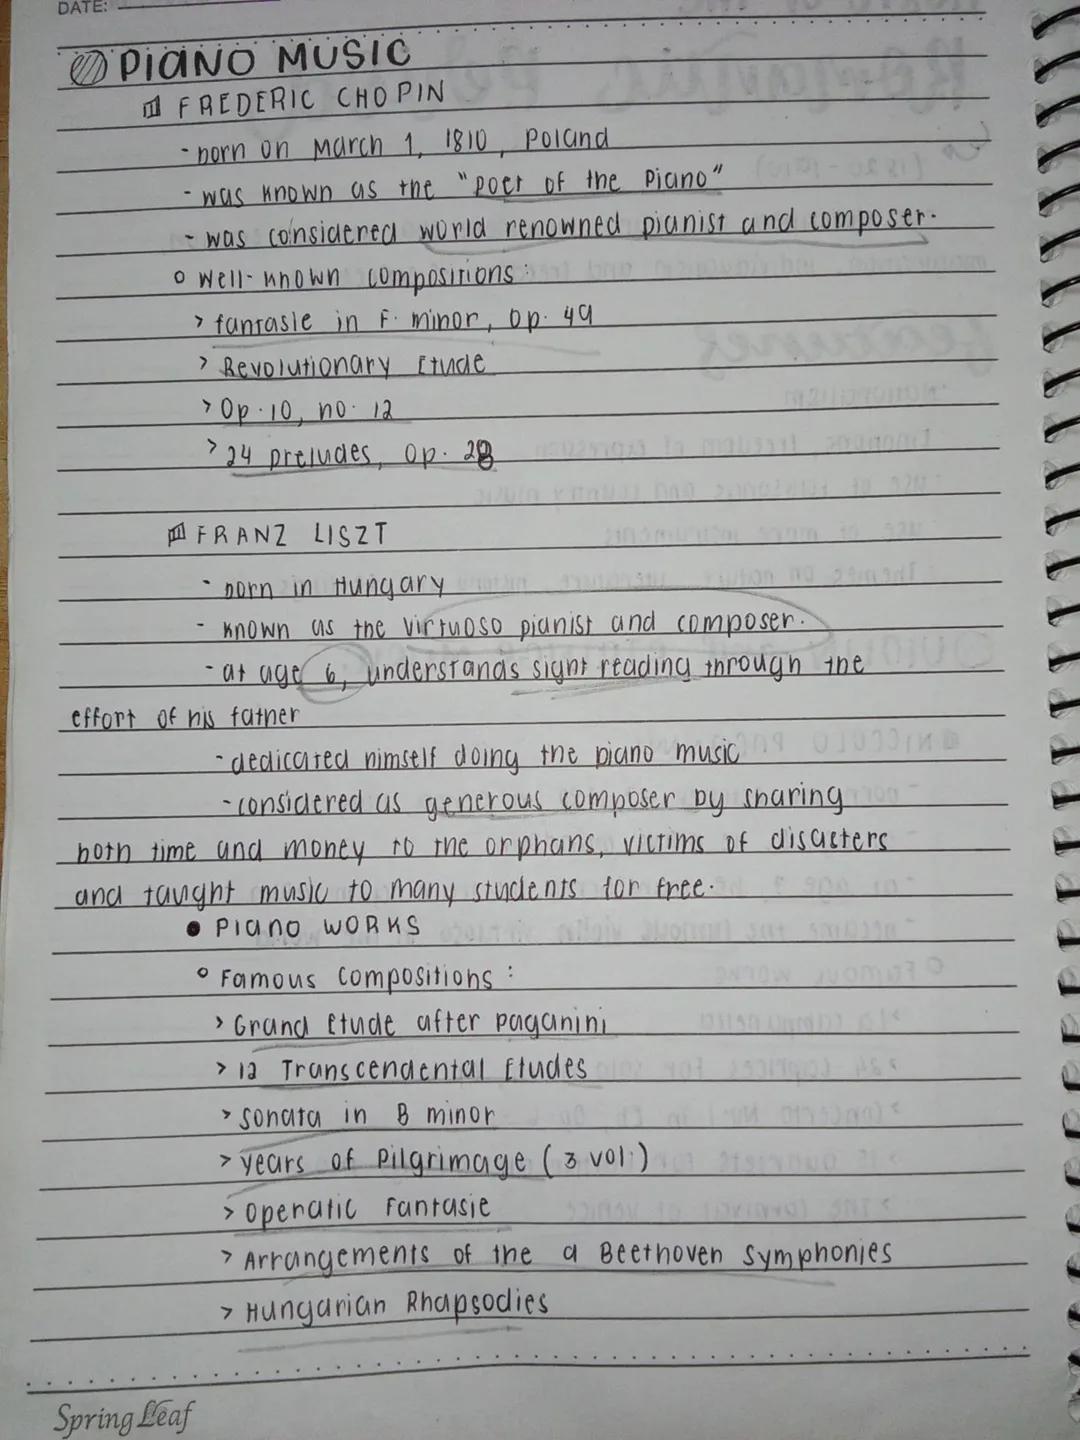 DATE:
PIANO MUSIC
FREDERIC CHOPIN
- born on March 1, 1810, Poland
- was known as the "poet of the Piano"
- was considered world renowned pianist and composer.
○ well-known compositions:
> fantasie in F. minor, Op. 49
> Revolutionary Etude
> Op. 10, no. 12
> 24 preludes, Op. 28
FRANZ LISZT
- born in Hungary
- known as the virtuoso pianist and composer.
- at age 6, understands sight reading through the
effort of his father
- dedicated himself doing the piano music
- considered as generous composer by sharing
both time and money to the orphans, victims of disasters
and taught music to many students for free.
● Piano WORKS
○ Famous Compositions:
> Grand Etude after paganini
> 12 Transcendental Etudes
> sonata in B minor
> years of Pilgrimage (3 vol.)
> Operatic Fantasie
> Arrangements of the 9 Beethoven Symphonies
> Hungarian Rhapsodies
Spring Leaf